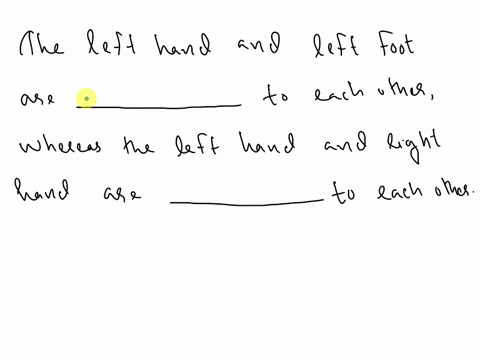 The left hand and left foot
are ____________ to each other,
whereas the left hand and right
hand are ____________ to each other.